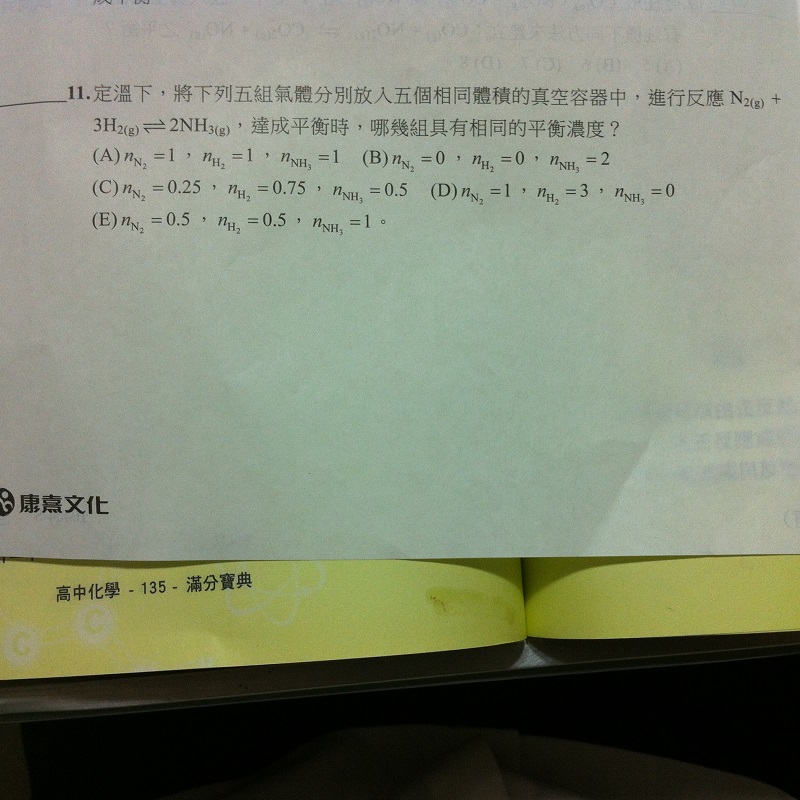 11.定溫下，將下列五組氣體分別放入五個相同體積的真空容器中，進行反應 N₂₍g₎ +
3H₂₍g₎ ⇌ 2NH₃₍g₎，達成平衡時，哪幾組具有相同的平衡濃度？
(A) n_N₂ = 1，n_H₂ = 1，n_NH₃ = 1 (B) n_N₂ = 0，n_H₂ = 0，n_NH₃ = 2
(C) n_N₂ = 0.25，n_H₂ = 0.75，n_NH₃ = 0.5 (D) n_N₂ = 1，n_H₂ = 3，n_NH₃ = 0
(E) n_N₂ = 0.5，n_H₂ = 0.5，n_NH₃ = 1。
康熹文化
高中化學 - 135 - 滿分寶典
C C